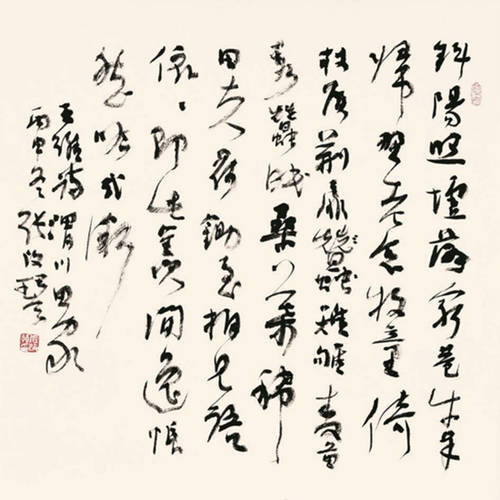 斜陽照墟落窮巷牛羊
歸野老念牧童倚
杖候荊扉雉雊麥苗
秀蠶眠桑葉稀
田夫荷鋤至相見語
依〻即此羨閒逸悵
然吟式微
王維詩渭川田家
丙申冬張改琴